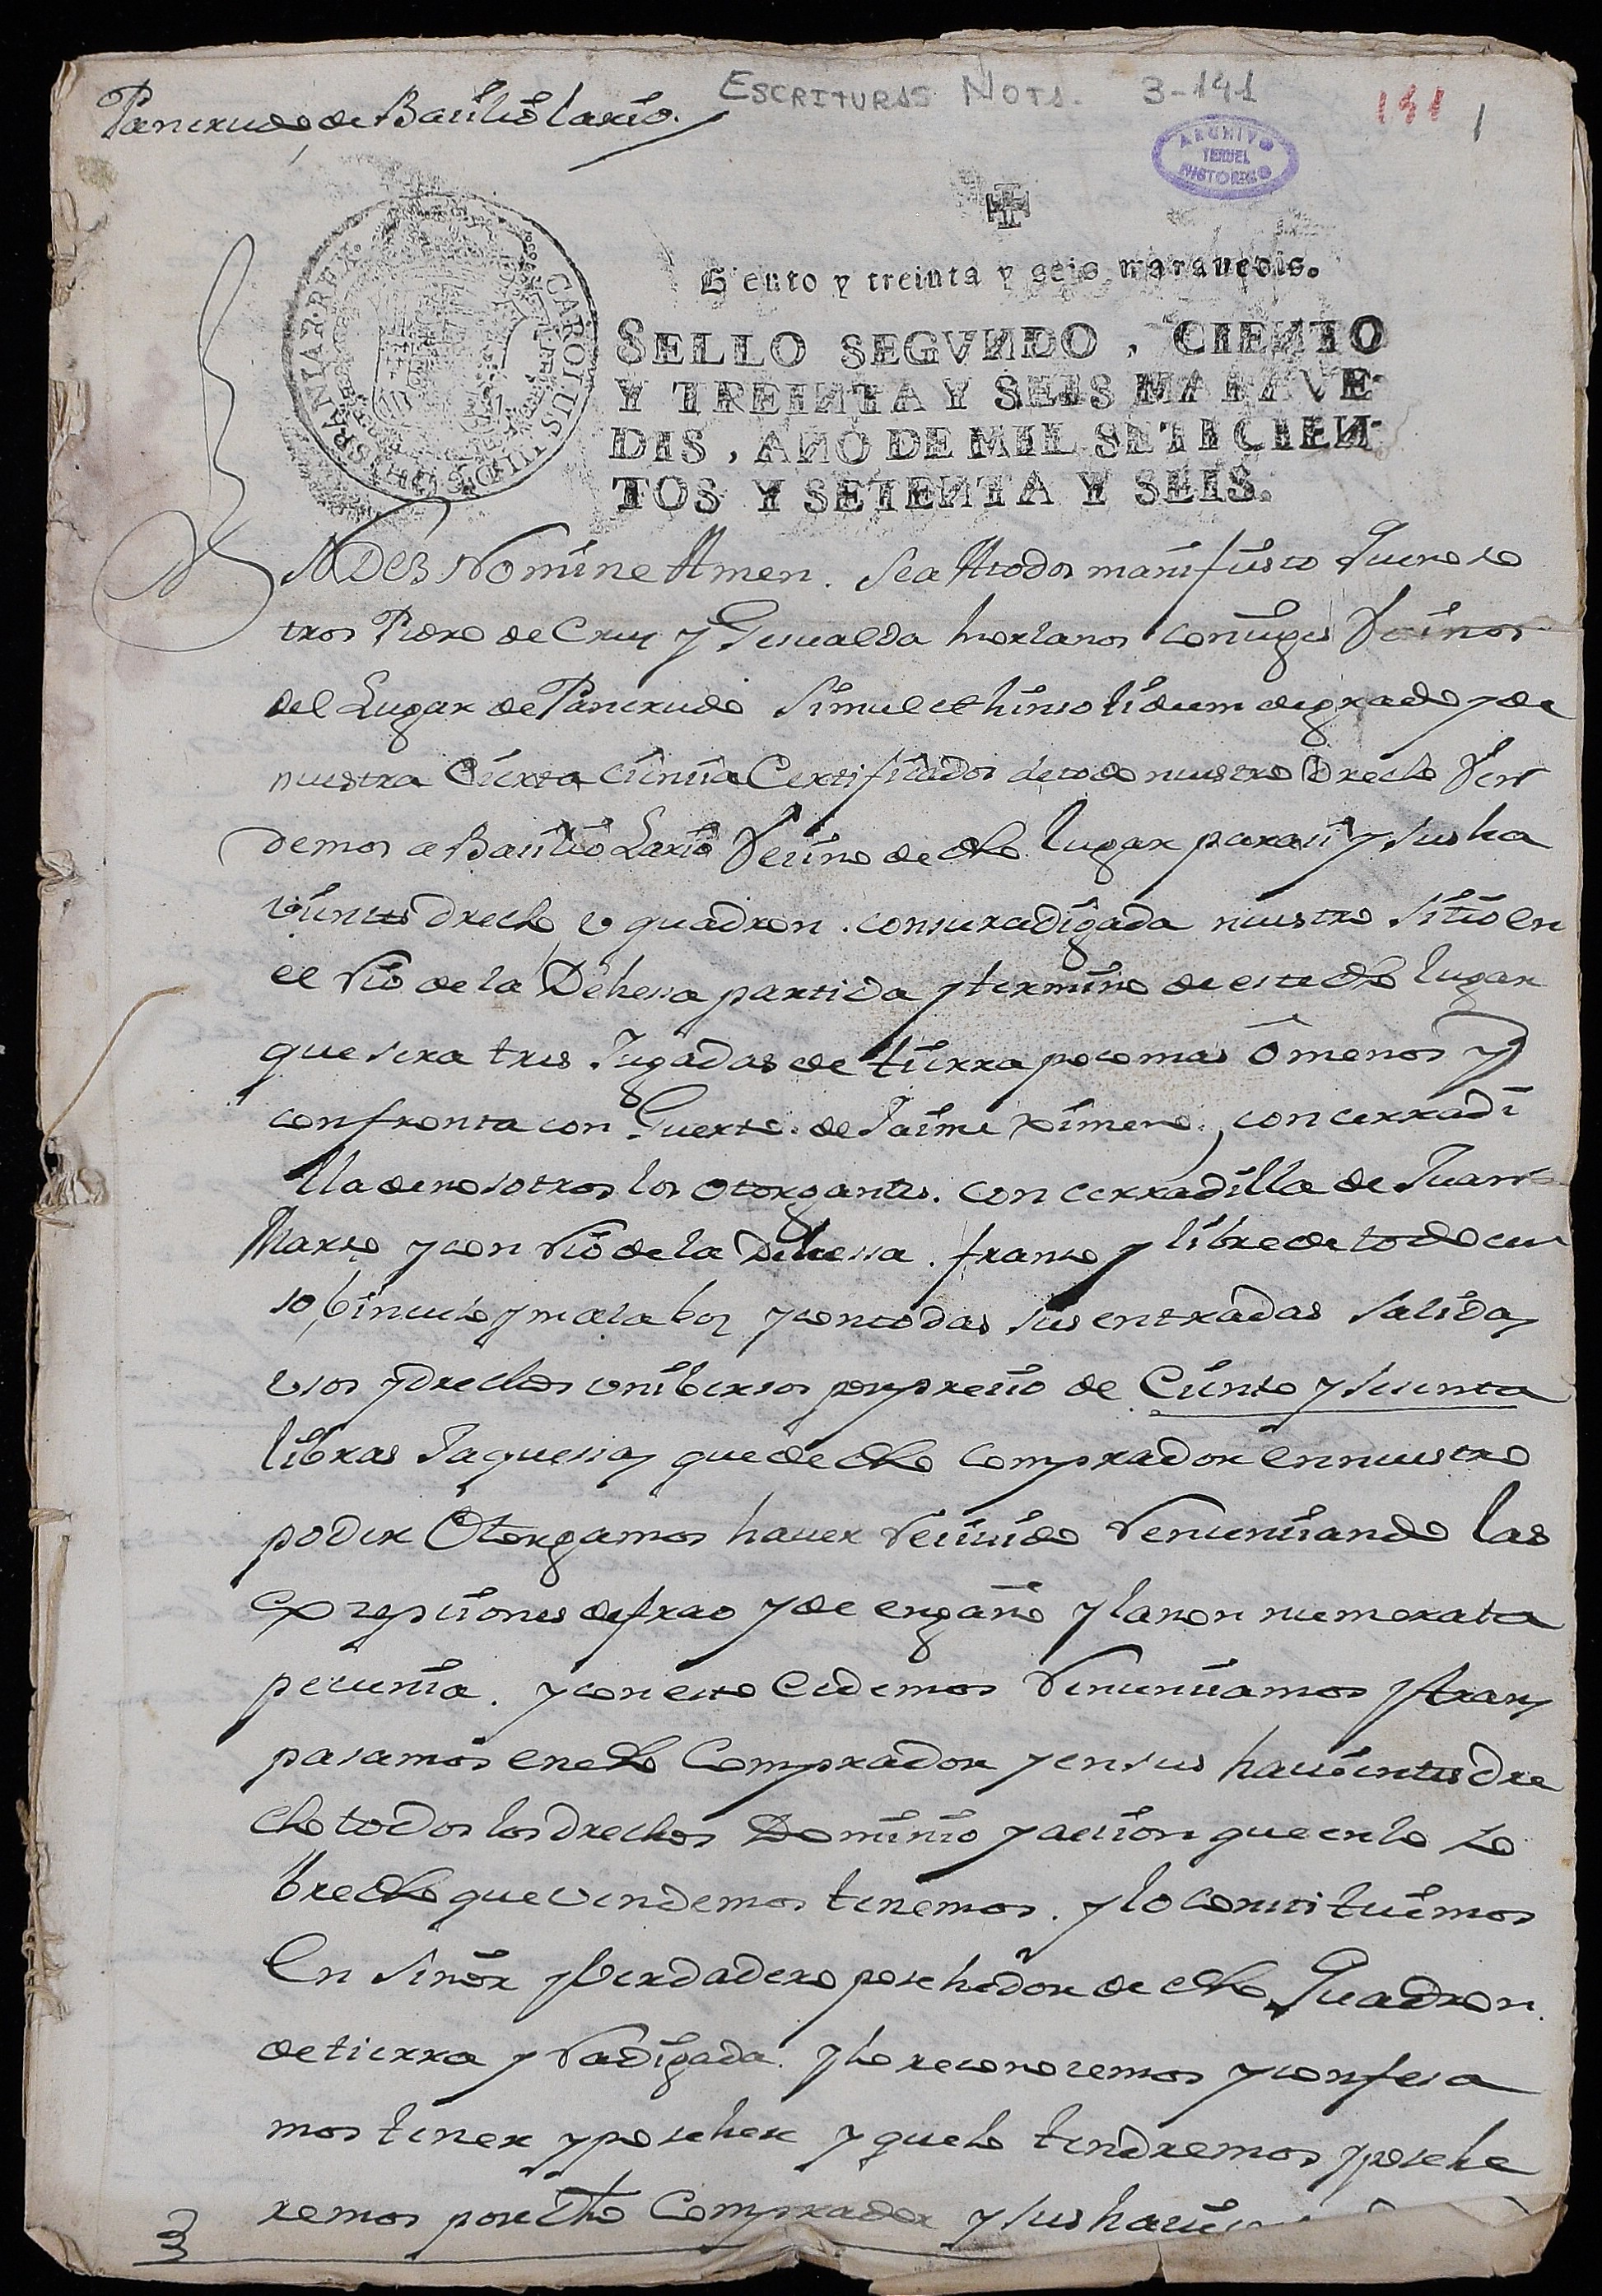 ESCRITURAS NOTS. 3-141
141 1
Pancrudo, de Basilio Lario.
ARCHIVO
TERUEL
HISTORICO
CAROLUS III D G HISPANIAR REX
Ciento y treinta y seis maravedis.
SELLO SEGVNDO, CIENTO
Y TREINTA Y SEIS MARAVE-
DIS, AÑO DE MIL SETECIEN-
TOS Y SETENTA Y SEIS.
N DEI Nomine Amen. Sea Atodos manifiesto Quenoso
tros Pedro de Cruz y Gesualda hortanos conuges Vecinos
del Lugar de Pancrudo Simul et hinsolidum degrado y de
nuestra Cierta ciencia Certificados de todo nuestro Drecho Ven
demos a Basilio Lario Vecino de dho lugar para si y sus ha
vientes drecho quadron. consuradigada nuestro sitio en
el Rio de la Dehessa partida y termino de este dho lugar
que sera tres Jugadas de tierra poco mas ô menos y
confronta con Guerto de Jaime ximeno, con cerradi
lla de nosotros los otorgantes. con cerradilla de Juan
Marco y con Rio de la Dehessa. franco y libre de todo cen
so, binculo y malaboz y con todas sus entradas salidas
usos y drechos unibersos por precio de Ciento y sesenta
libras Jaquesas que de dho comprador en nuestro
poder Otorgamos hauer Recivido Renunciando las
excepciones de frao y de engaño y la non numerata
pecunia. y con esto Cedemos Renunciamos y tran
pasamos en dho Comprador y en sus havientes dre
cho todos los drechos Dominio y accion que en lo so
bredho que vendemos tenemos. y lo constituimos
En Señor y Verdadero posehedor de dho Quadron.
de tierra y Radigada. y lo reconozemos y confesa
mos tener y poseher y que lo tendremos y posehe
remos por dho Comprador y sus havie